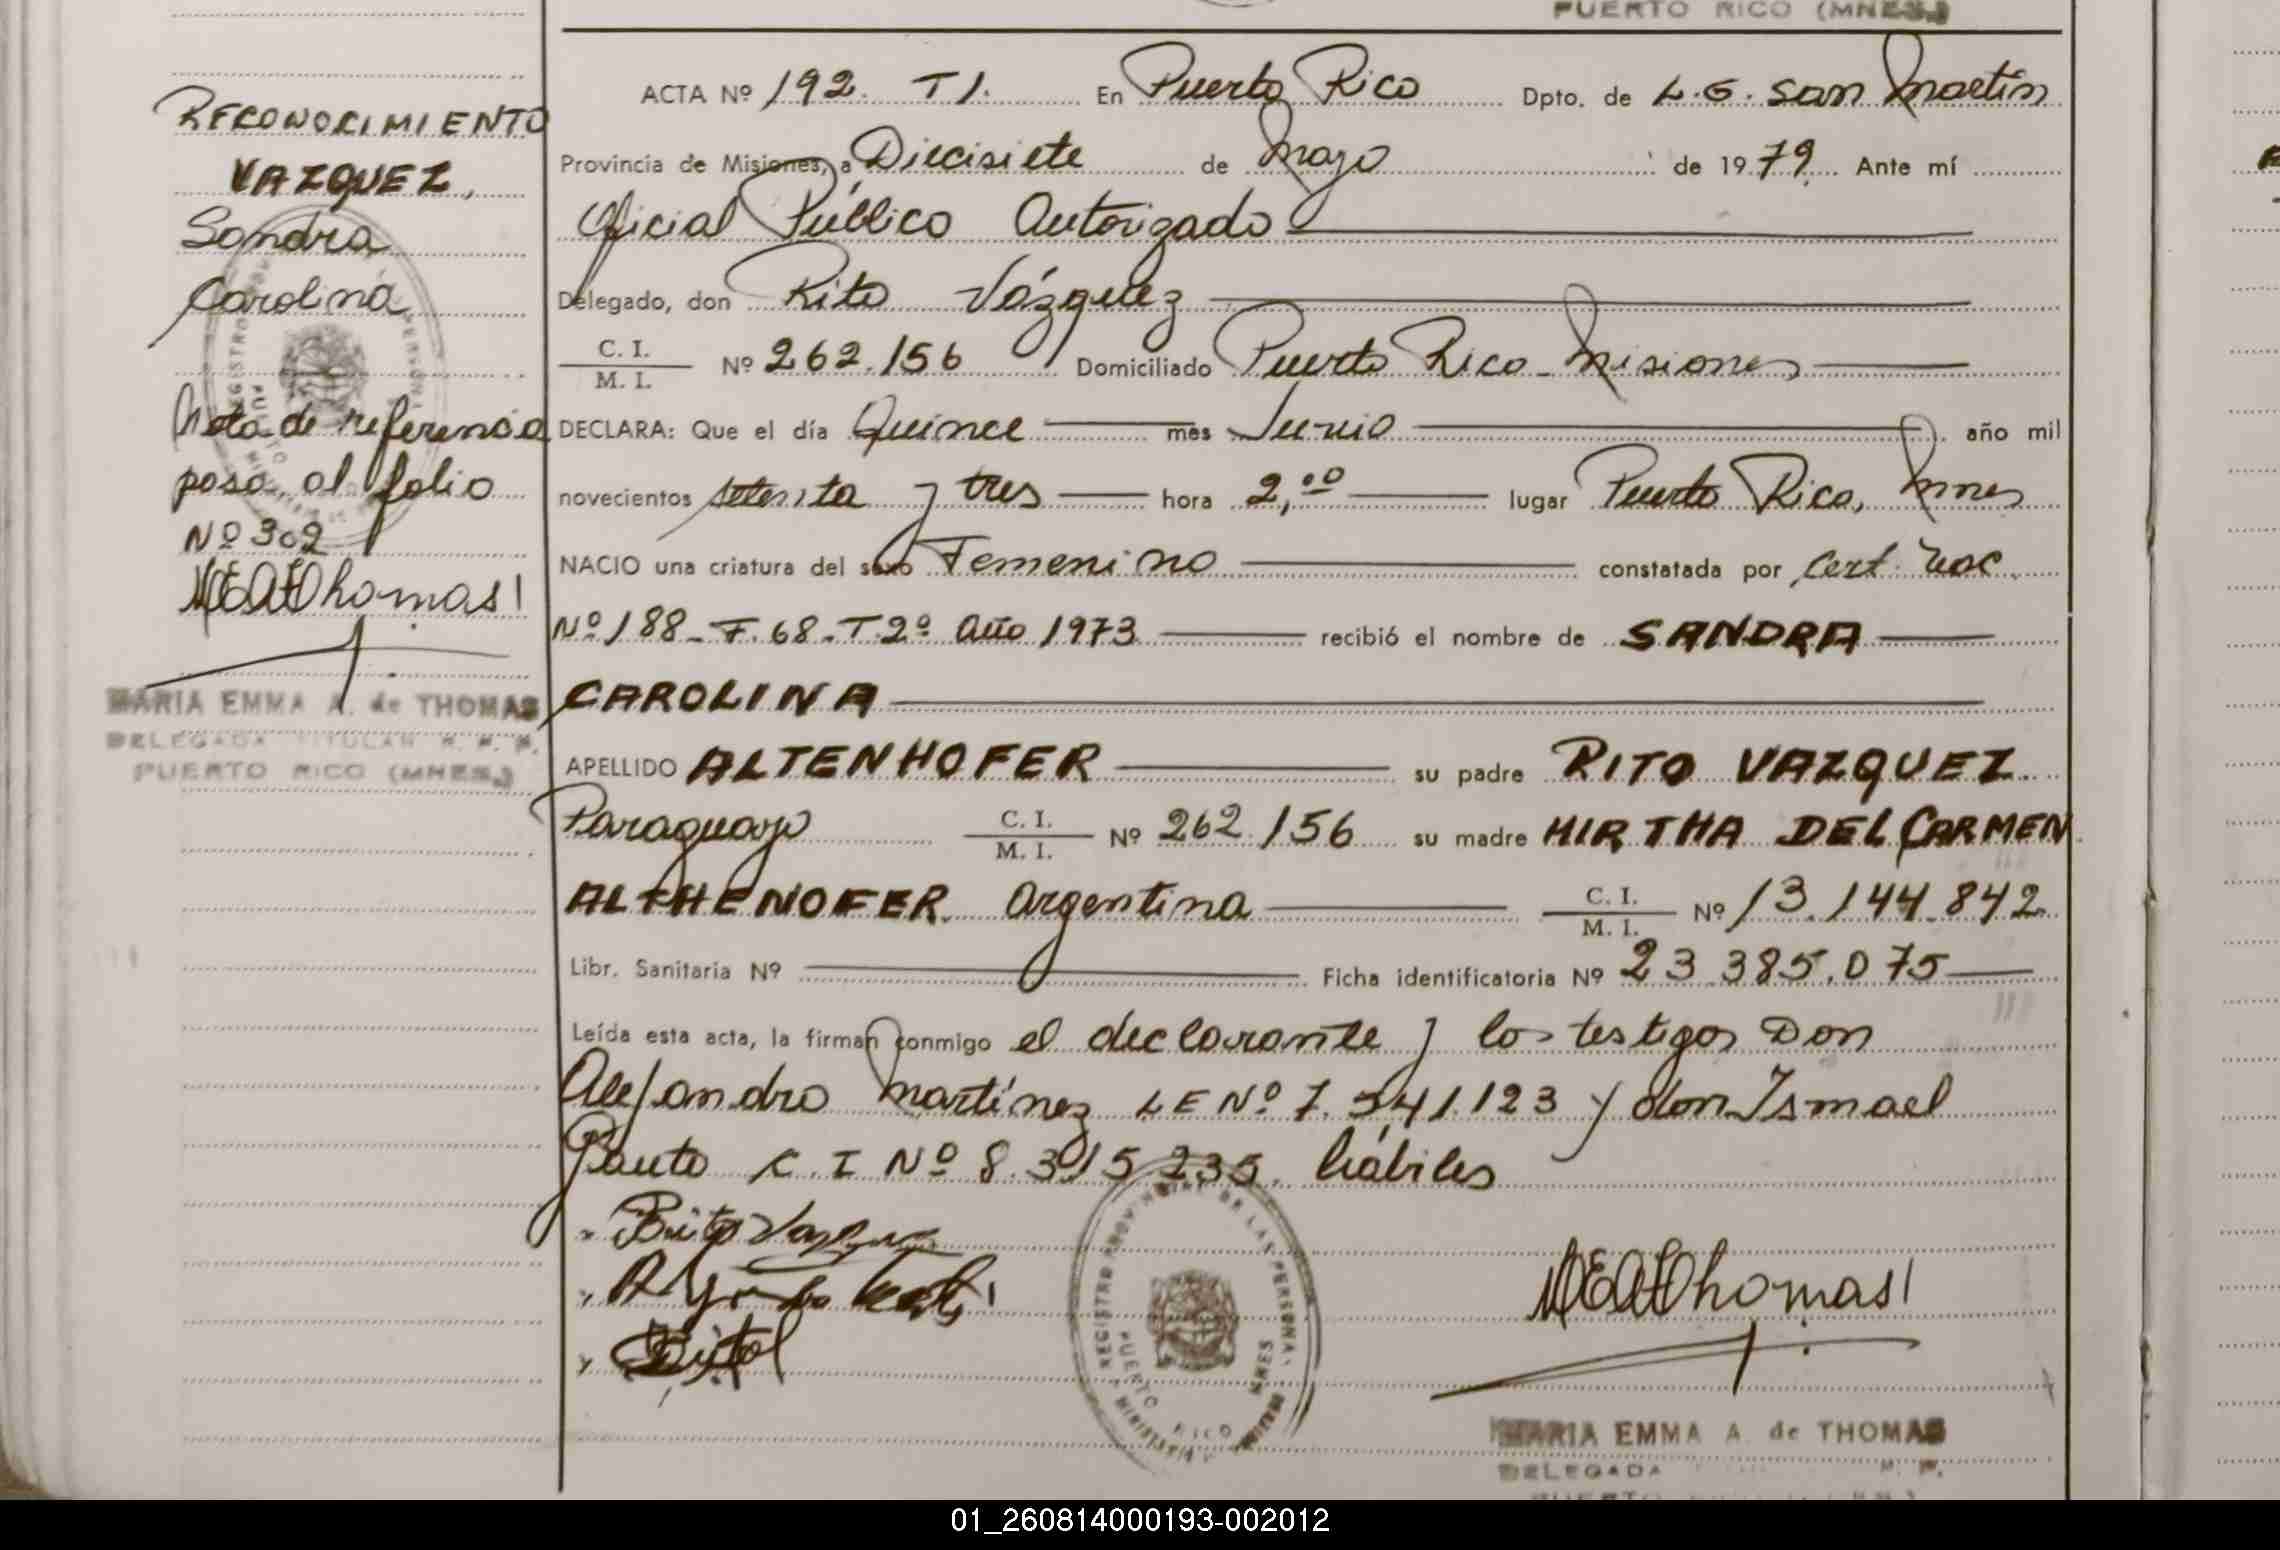 PUERTO RICO (MNES.)
ACTA Nº 192. T1. En Puerto Rico Dpto. de L.G. San Martín
Provincia de Misiones, a Diecisiete de Mayo de 1979. Ante mí
Oficial Público Autorizado
Delegado, don Rito Vázquez
C. I.
M. I.
Nº 262.156 Domiciliado Puerto Rico - Misiones
DECLARA: Que el día Quince mes Junio año mil
novecientos setenta y tres hora 2,00 lugar Puerto Rico, Mnes
NACIO una criatura del sexo Femenino constatada por Cert. Nac.
Nº 188 - F. 68 - T. 2º Año 1973 recibió el nombre de SANDRA
CAROLINA
APELLIDO ALTENHOFER su padre RITO VAZQUEZ
Paraguayo C. I.
M. I.
Nº 262.156 su madre MIRTHA DEL CARMEN
ALTHENOFER. Argentina C. I.
M. I.
Nº 13.144.842
Libr. Sanitaria Nº Ficha identificatoria Nº 23.385.075
Leída esta acta, la firman conmigo el declarante y los testigos Don
Alejandro Martínez LE Nº 7.541.123 y don Ismael
C. I Nº 8.315.235. hábiles
MEAThomas
MARIA EMMA A. de THOMAS
DELEGADA
RECONOCIMIENTO
VAZQUEZ,
Sandra
Carolina
Nota de referencia
pasa al folio
Nº 302
MEAThomas
MARIA EMMA A. de THOMAS
DELEGADA TITULAR R. P. P.
PUERTO RICO (MNES.)
REGISTRO PROVINCIAL DE LAS PERSONAS
PUERTO RICO MNES
01_260814000193-002012